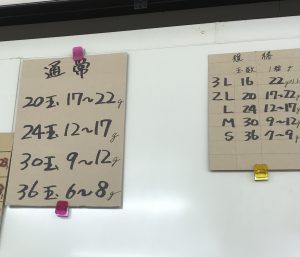 通常
20玉 17〜22g
24玉 12〜17g
30玉 9〜12g
36玉 6〜8g
優勝
玉数 1粒
3L 16 22g以上
2L 20 17〜22g
L 24 12〜17g
M 30 9〜12g
S 36 7〜9g